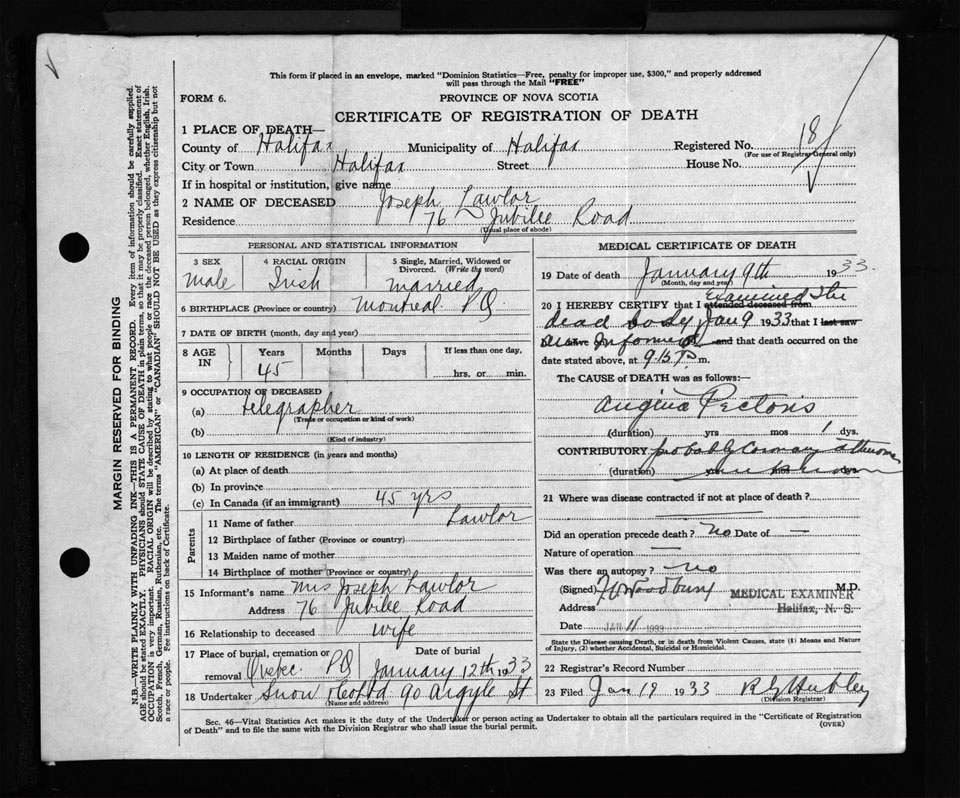 This form if placed in an envelope, marked "Dominion Statistics—Free, penalty for improper use, $300," and properly addressed
will pass through the Mail "FREE"
FORM 6.
PROVINCE OF NOVA SCOTIA
CERTIFICATE OF REGISTRATION OF DEATH
1 PLACE OF DEATH—
County of Halifax Municipality of Halifax Registered No. 18
(For use of Registrar General only)
City or Town Halifax Street House No.
If in hospital or institution, give name
2 NAME OF DECEASED Joseph Lawlor
Residence 76 Jubilee Road
(Usual place of abode)
PERSONAL AND STATISTICAL INFORMATION
3 SEX 4 RACIAL ORIGIN 5 Single, Married, Widowed or
Divorced. (Write the word)
Male Irish married
6 BIRTHPLACE (Province or country) Montreal PQ
7 DATE OF BIRTH (month, day and year)
8 AGE IN Years Months Days If less than one day,
45 hrs. or min.
9 OCCUPATION OF DECEASED
(a) telegrapher
(Trade or occupation or kind of work)
(b)
(Kind of industry)
10 LENGTH OF RESIDENCE (in years and months)
(a) At place of death
(b) In province
(c) In Canada (if an immigrant) 45 yrs
Parents
11 Name of father Lawlor
12 Birthplace of father (Province or country)
13 Maiden name of mother
14 Birthplace of mother (Province or country)
15 Informant's name Mrs Joseph Lawlor
Address 76 Jubilee Road
16 Relationship to deceased wife
17 Place of burial, cremation or removal Date of burial
Quebec PQ January 12th 1933
18 Undertaker Snow & Co Ltd 90 Argyle St
(Name and address)
MEDICAL CERTIFICATE OF DEATH
19 Date of death January 9th 1933.
(Month, day and year)
20 I HEREBY CERTIFY that I attended deceased from examined the
dead body Jan 9 1933 that I last saw
informed and that death occurred on the
date stated above, at 9 15 P m.
The CAUSE OF DEATH was as follows:—
Angina Pectoris
(duration) yrs mos 1 dys.
CONTRIBUTORY probably Coronary
(duration) yrs mos dys
21 Where was disease contracted if not at place of death?
Did an operation precede death? no Date of —
Nature of operation —
Was there an autopsy? no
(Signed) Woodbury M.D.
MEDICAL EXAMINER
Address Halifax, N. S.
Date JAN 11
State the Disease causing Death, or in death from Violent Causes, state (1) Means and Nature
of Injury, (2) whether Accidental, Suicidal or Homicidal.
22 Registrar's Record Number
23 Filed Jan 19 1933
(Division Registrar)
Sec. 46—Vital Statistics Act makes it the duty of the Undertaker or person acting as Undertaker to obtain all the particulars required in the "Certificate of Registration
of Death" and to file the same with the Division Registrar who shall issue the burial permit.
(OVER)
MARGIN RESERVED FOR BINDING
N.B.—WRITE PLAINLY WITH UNFADING INK—THIS IS A PERMANENT RECORD. Every item of information should be carefully supplied.
AGE should be stated EXACTLY. PHYSICIANS should STATE CAUSE OF DEATH in plain terms, so that it may be properly classified. Exact statement of
OCCUPATION is very important. RACIAL ORIGIN will be described by stating to what people or race the deceased person belonged, whether English, Irish,
Scotch, French, German, Russian, Ruthenian, etc. The terms "AMERICAN" or "CANADIAN" SHOULD NOT BE USED as they express citizenship but not
a race or people. See instructions on back of Certificate.